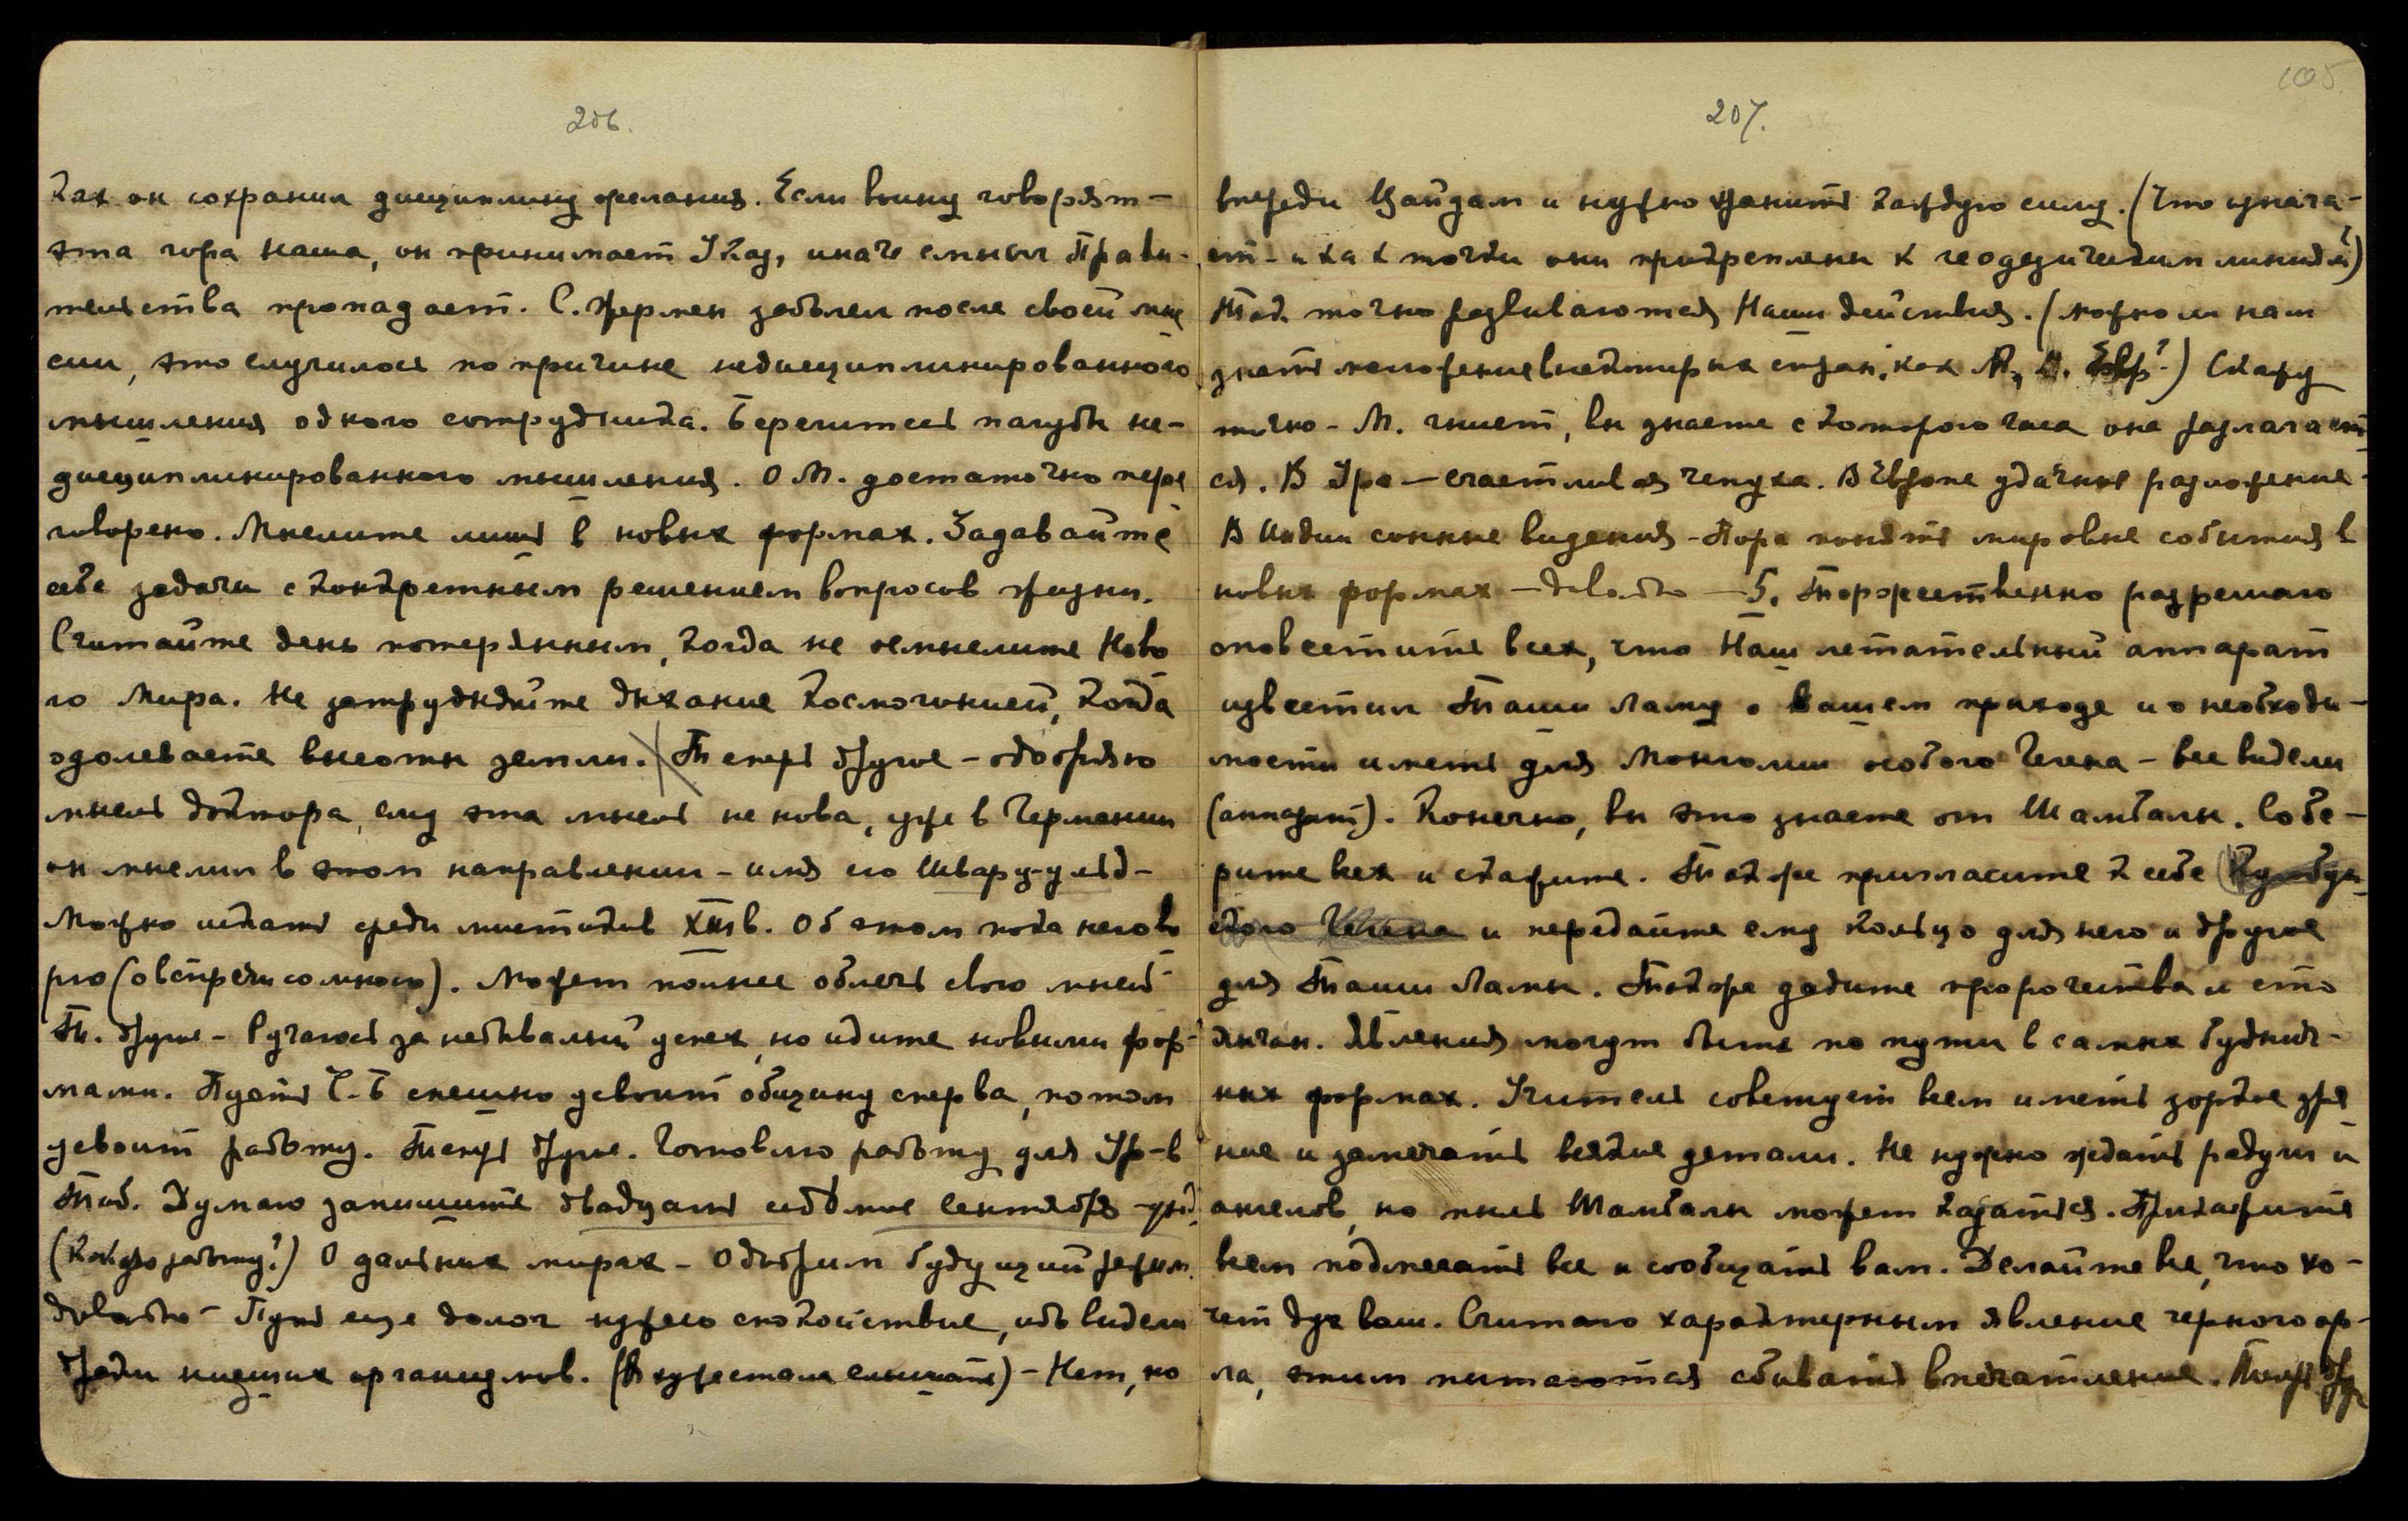 206.
Как он сохранил дисциплину желания. Если воину говорят –
эта гора наша, он принимает Указ, иначе смысл Прави-
тельства пропадает. С. Жермен заболел после своей мис
сии, это случилось по причине недисциплинированного
мышления одного сотрудника. Берегитесь пагубы не-
дисциплинированного мышления. О М. достаточно пере
говорено. Мыслите лишь в новых формах. Задавайте
себе задачи с конкретным решением вопросов жизни.
Считайте день потерянным, когда не осмыслите Ново
го Мира. Не затрудняйте дыхание Космогонией, когда
одолеваете высоты земли. Теперь другое – одобряю
мысль доктора, ему эта мысль не нова, уже в Германии
он мыслил в этом направлении – имя его Шварц-
Можно искать среди мистиков в. Об этом пока не гово
рю (о встрече со мною). Может полнее облечь свою мысль –
Т. другое – Ручаюсь за небывалый успех, но идите новыми фор-
мами. Пусть Ч.-Б спешно усвоит общину сперва, потом
усвоит работу. Теперь другое. Готовлю работу для Ур – в
Тиб. Думаю запишите двадцать седьмое сентября –
(Какую работу?) О дальних мирах – Одобрим будущий режим.
довольно – Путь еще долог нужно спокойствие, ибо видели
ряды низших организмов. (Я перестала слышать) – Нет, но
105
207.
впереди Цайдам и нужно хранить каждую силу. (Что означа-
ет – и как точки они прикреплены к геодезическим линиям?)
Так точно развиваются Наши действия. (можно ли нам
знать положение некоторых стран, как М., А. Евр?) Скажу
точно – М. гниет, вы знаете с которого часа она разлагает
ся. В Ура – счастливая чепуха. В Европе удачное разложение –
В Индии сонные видения – Пора понять мировые события в
новых формах – довольно – 5. Торжественно разрешаю
оповестить всех, что Наш летательный аппарат
известил Таши Ламу о вашем приходе и о необходи-
мости иметь для Монголии особого Гегена – все видели
(аппарат). Конечно, вы это знаете от Шамбалы. Собе-
рите всех и скажите. Также пригласите к себе
ского Гегена и передайте ему кольцо для него и другое
для Таши Ламы. Также дадите пророчества и сто
янчан. Явления могут быть по пути в самых буднич-
ных формах. Учитель советует всем иметь зоркое зре
ние и замечать всякие детали. Не нужно ждать радуги и
ангелов, но пыль Шамбалы может казаться. Прикажите
всем подмечать все и сообщать вам. Делайте все, что хо-
чет дух ваш. Считаю характерным явление черного ор-
ла, этим пытаются сбивать впечатление. Теперь друг